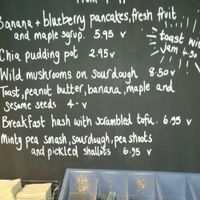 Banana + blueberry pancakes, fresh fruit
and maple syrup. 5.95 v
toast wit
jam 4.50
Chia pudding pot 2.95 v
Wild mushrooms on sourdough 8.50 v
Toast, peanut butter, banana, maple and
sesame seeds 4- v
Breakfast hash with scrambled tofu. 6.95 v
Minty pea smash, sourdough, pea shoots
and pickled shallots 6.95 v